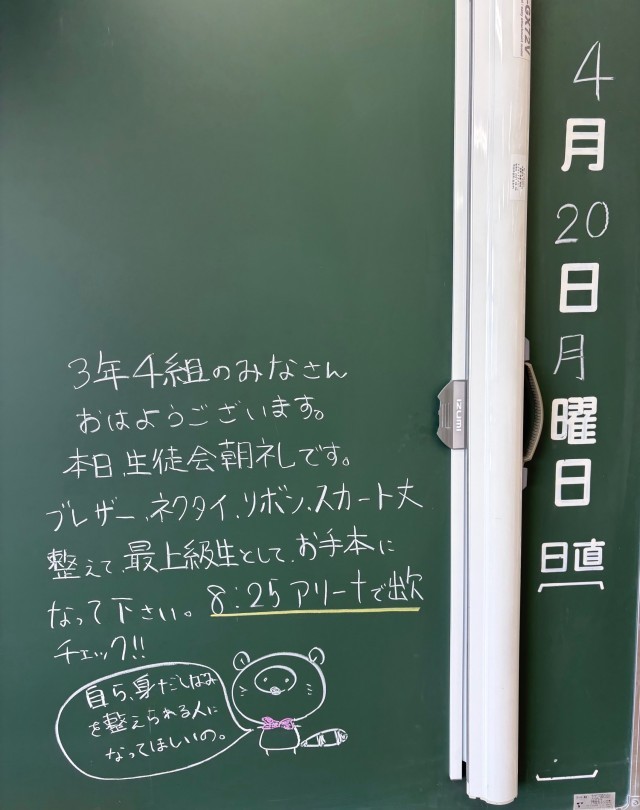 3年4組のみなさん
おはようございます。
本日、生徒会朝礼です。
ブレザー、ネクタイ、リボン、スカート丈
整えて、最上級生として、お手本に
なって下さい。8:25アリーナで出欠
チェック!!
自ら、身だしなみ
を整えられる人に
なってほしいの。
4月20日月曜日
日直
izumi